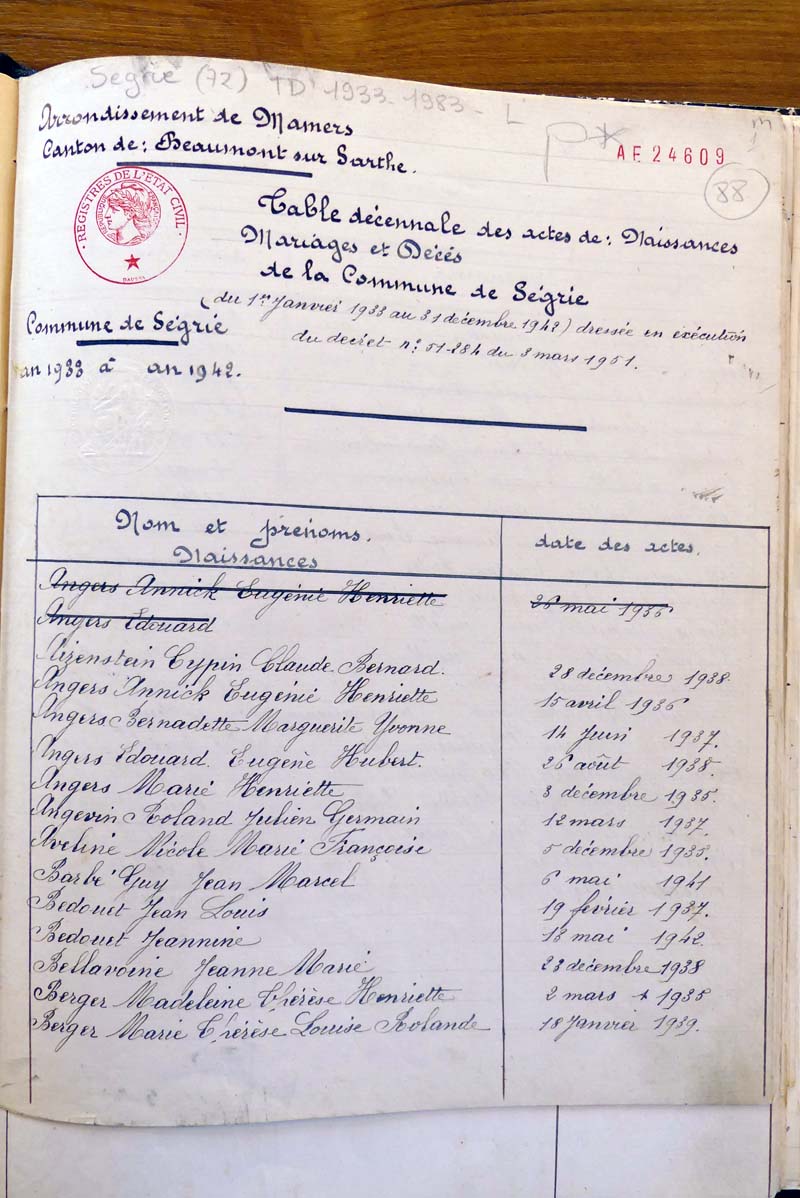 Ségrie (72) TD 1933-1983 - L
Arrondissement de Mamers
Canton de: Beaumont sur Sarthe.
AE 24609
88
REGISTRES DE L'ETAT CIVIL
REPUBLIQUE FRANÇAISE
Table décennale des actes de: Naissances
Mariages et Décés
de la Commune de Ségrie
(du 1er Janvier 1933 au 31 décembre 1942) dressée en exécution
du decret n° 51-284 du 3 mars 1951.
Commune de Ségrie
an 1933 à an 1942.
Nom et prénoms. date des actes.
Naissances
Angers Annick Eugénie Henriette 26 mai 1936
Angers Edouard
Aizenstein Cypin Claude Bernard. 28 décembre 1938.
Angers Annick Eugénie Henriette 15 avril 1936
Angers Bernadette Marguerite Yvonne 14 Juin 1937.
Angers Edouard. Eugène Hubert. 26 août 1938.
Angers Marie Henriette 3 décembre 1935.
Angevin Roland Julien Germain 12 mars 1937.
Aveline Nicole Marie Françoise 5 décembre 1935.
Barbé Guy Jean Marcel 6 mai 1941
Bedouet Jean Louis 19 février 1937.
Bedouet Jeannine 13 mai 1942.
Bellavoine Jeanne Marie 23 décembre 1938
Berger Madeleine Thérèse Henriette 2 mars 1935
Berger Marie Thérèse Louise Rolande 18 Janvier 1939.